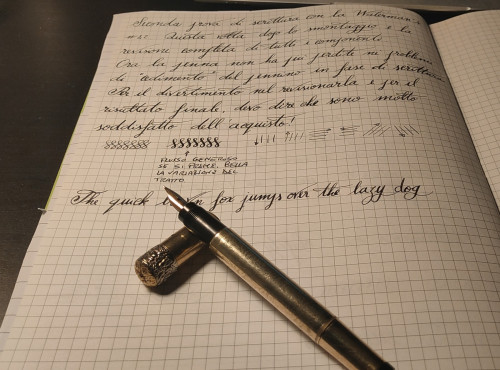 Seconda prova di scrittura con la Waterman's
Questa volta dopo lo smontaggio e la
revisione completa di tutti i componenti.
Ora la penna non ha più perdite nè problemi
di "cedimento" del pennino in fase di scrittura.
Per il divertimento nel revisionarla e per il
risultato finale, devo dire che sono molto
soddisfatto dell'acquisto!
FLUSSO GENEROSO
SE SI PREME, BELLA
LA VARIAZIONE DEL
TRATTO
The quick fox jumps over the lazy dog